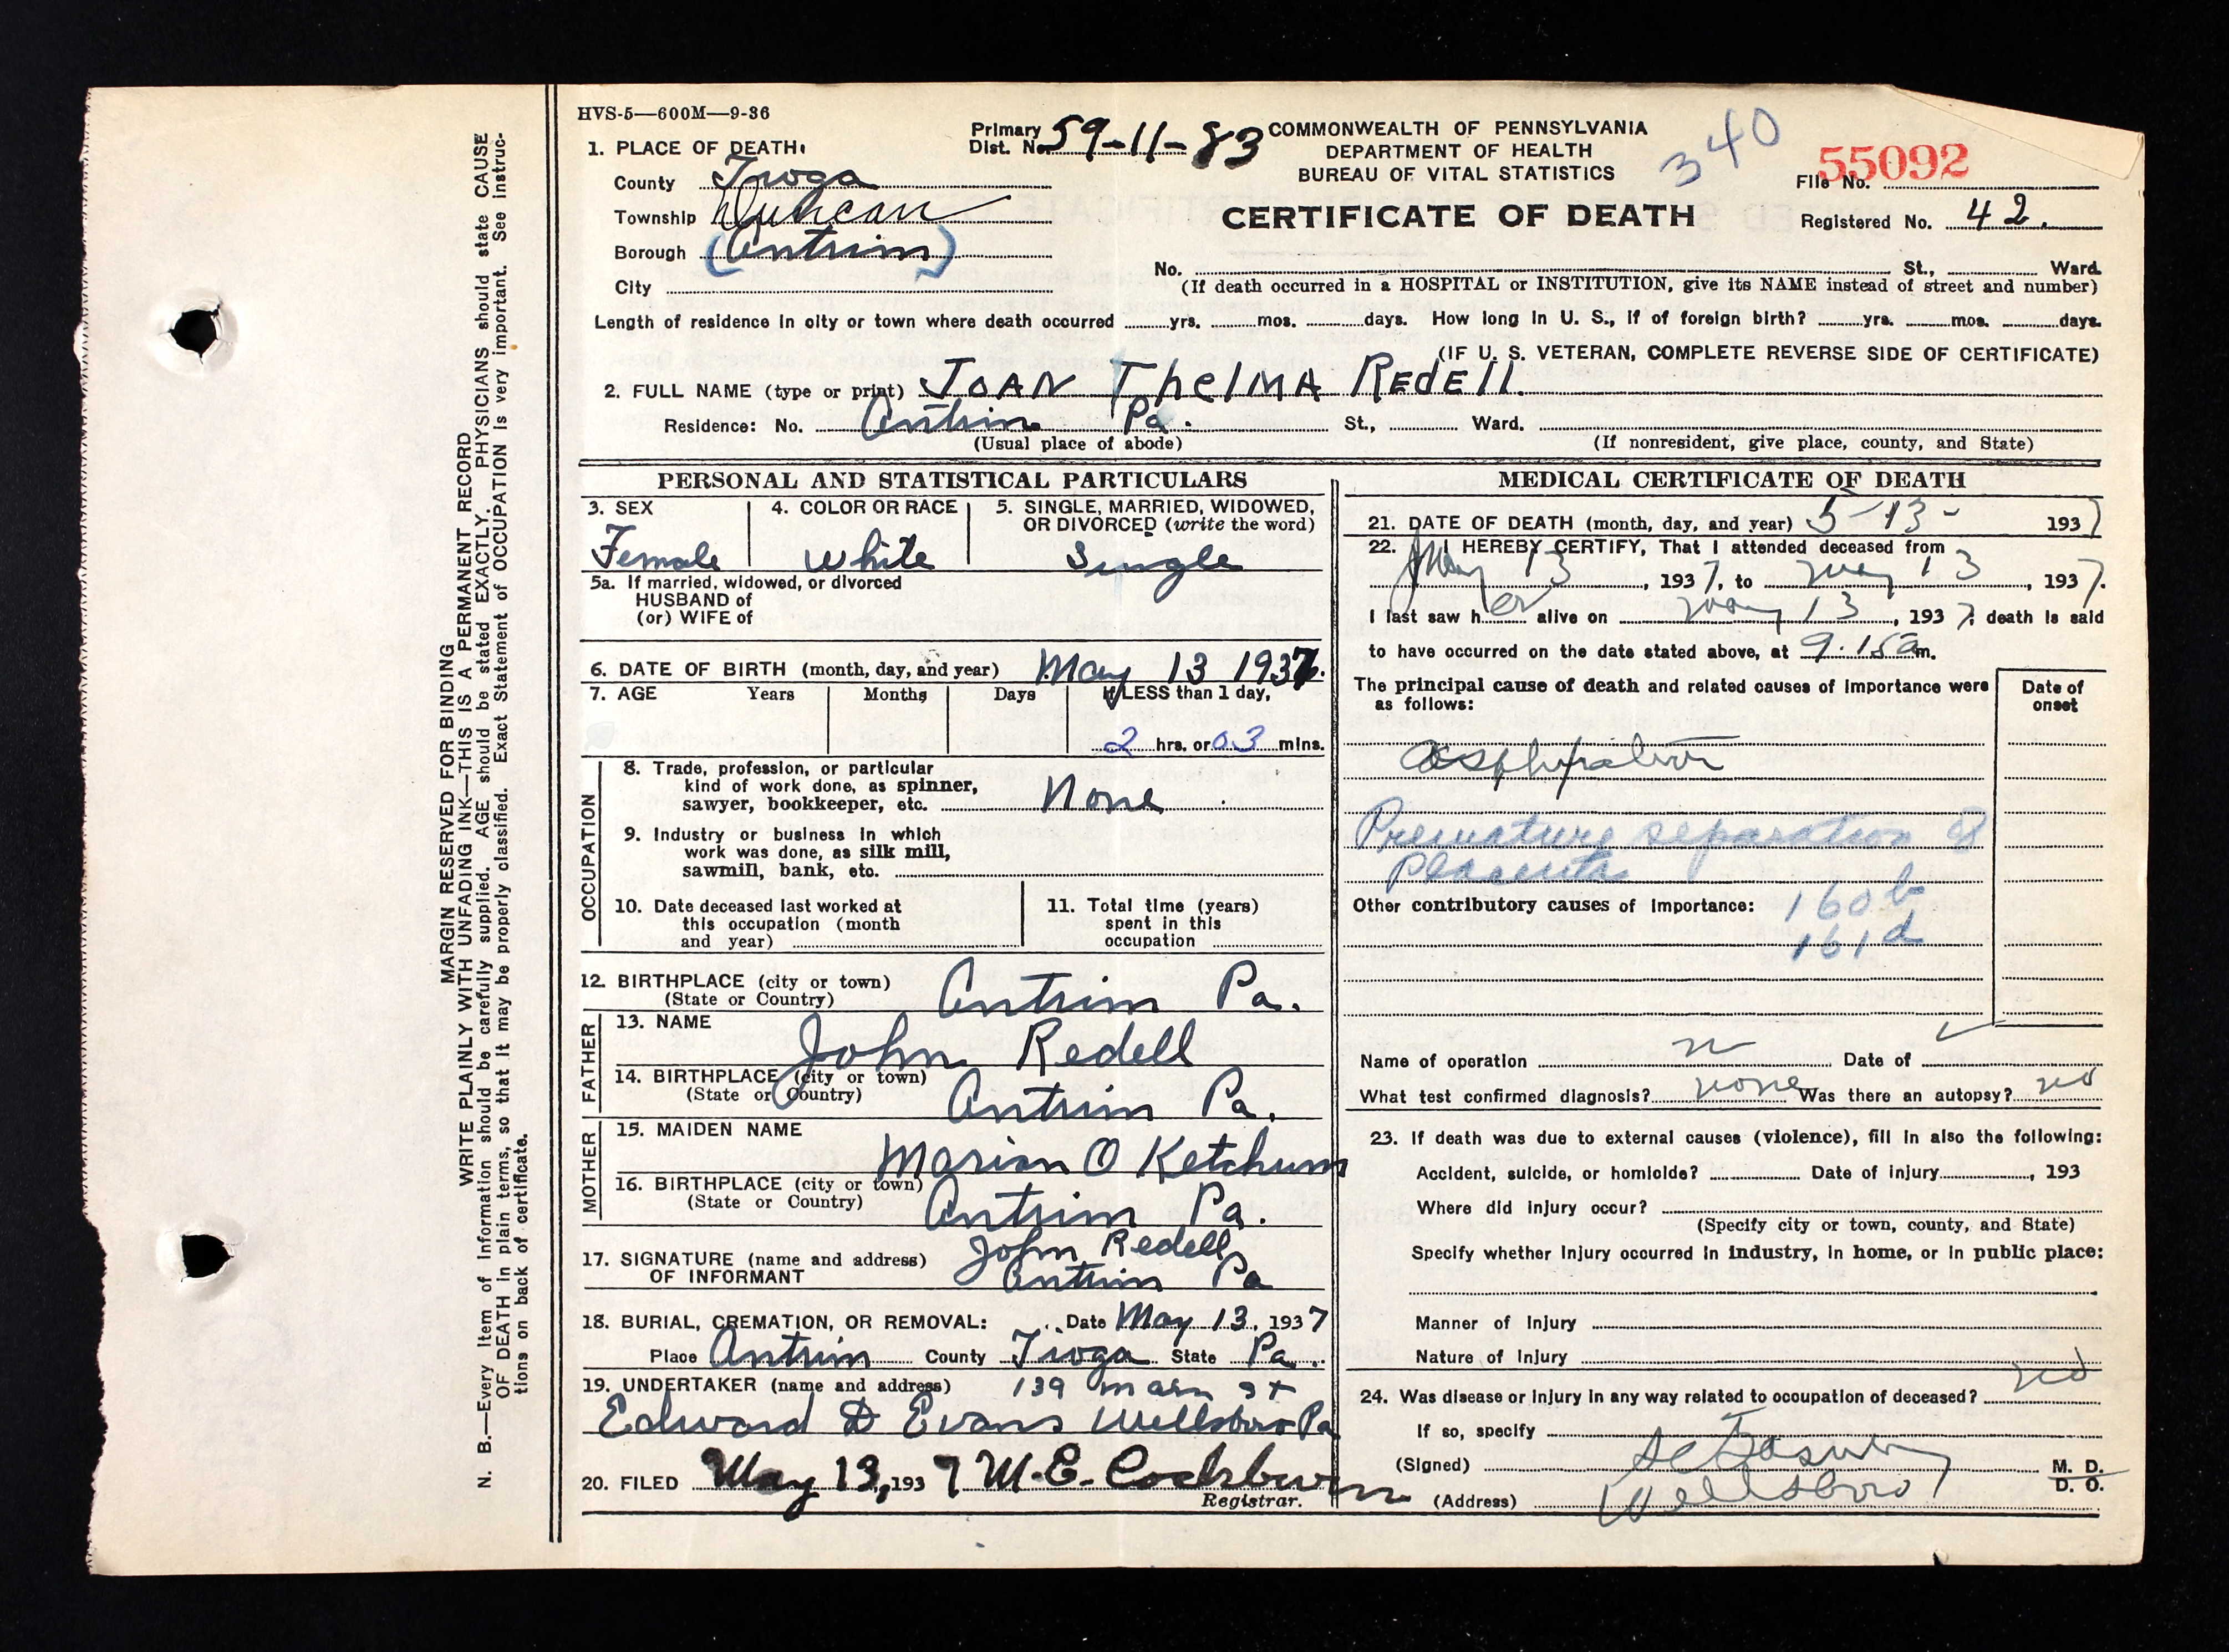 HVS-5—600M—9-36
1. PLACE OF DEATH:
County Tioga
Township Duncan
Borough (Antrim)
City
Primary Dist. No. 59-11-83
COMMONWEALTH OF PENNSYLVANIA
DEPARTMENT OF HEALTH
BUREAU OF VITAL STATISTICS
CERTIFICATE OF DEATH
340
55092
File No.
Registered No. 42.
No. St., Ward.
(If death occurred in a HOSPITAL or INSTITUTION, give its NAME instead of street and number)
Length of residence in city or town where death occurred yrs. mos. days. How long in U. S., if of foreign birth? yrs. mos. days.
(IF U. S. VETERAN, COMPLETE REVERSE SIDE OF CERTIFICATE)
2. FULL NAME (type or print) JOAN ThelMA REdEll.
Residence: No. Antrim Pa. St., Ward.
(Usual place of abode) (If nonresident, give place, county, and State)
PERSONAL AND STATISTICAL PARTICULARS
3. SEX
Female
4. COLOR OR RACE
White
5. SINGLE, MARRIED, WIDOWED,
OR DIVORCED (write the word)
Single
5a. If married, widowed, or divorced
HUSBAND of
(or) WIFE of
6. DATE OF BIRTH (month, day, and year) May 13 1937.
7. AGE Years Months Days If LESS than 1 day,
2 hrs. or 03 mins.
OCCUPATION
8. Trade, profession, or particular
kind of work done, as spinner,
sawyer, bookkeeper, etc. None
9. Industry or business in which
work was done, as silk mill,
sawmill, bank, etc.
10. Date deceased last worked at
this occupation (month
and year)
11. Total time (years)
spent in this
occupation
12. BIRTHPLACE (city or town) Antrim Pa.
(State or Country)
FATHER
13. NAME John Redell
14. BIRTHPLACE (city or town)
(State or Country) Antrim Pa.
MOTHER
15. MAIDEN NAME
Marian O Ketchum
16. BIRTHPLACE (city or town)
(State or Country) Antrim Pa.
17. SIGNATURE (name and address) John Redell
OF INFORMANT Antrim Pa
18. BURIAL, CREMATION, OR REMOVAL: Date May 13, 1937
Place Antrim County Tioga State Pa.
19. UNDERTAKER (name and address) 139 Main St
Edward D Evans Wellsboro Pa
20. FILED May 13, 1937 M.E. Cockburn
Registrar.
MEDICAL CERTIFICATE OF DEATH
21. DATE OF DEATH (month, day, and year) 5-13- 1937
22. I HEREBY CERTIFY, That I attended deceased from
May 13, 1937, to May 13, 1937.
I last saw her alive on May 13, 1937; death is said
to have occurred on the date stated above, at 9.15 a m.
The principal cause of death and related causes of importance were
as follows:
Date of
onset
Premature separation of
Placenta
Other contributory causes of importance: 160b
161d
Name of operation Date of
What test confirmed diagnosis? none Was there an autopsy? no
23. If death was due to external causes (violence), fill in also the following:
Accident, suicide, or homicide? Date of injury, 193
Where did injury occur?
(Specify city or town, county, and State)
Specify whether injury occurred in industry, in home, or in public place:
Manner of injury
Nature of injury
24. Was disease or injury in any way related to occupation of deceased? no
If so, specify
(Signed) M. D.
D. O.
(Address) Wellsboro
MARGIN RESERVED FOR BINDING
WRITE PLAINLY WITH UNFADING INK—THIS IS A PERMANENT RECORD
N. B.—Every item of information should be carefully supplied. AGE should be stated EXACTLY. PHYSICIANS should state CAUSE
OF DEATH in plain terms, so that it may be properly classified. Exact Statement of OCCUPATION is very important. See instruc-
tions on back of certificate.